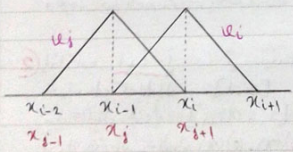 φj φi
xi-2 xi-1 xi xi+1
xj-1 xj xj+1